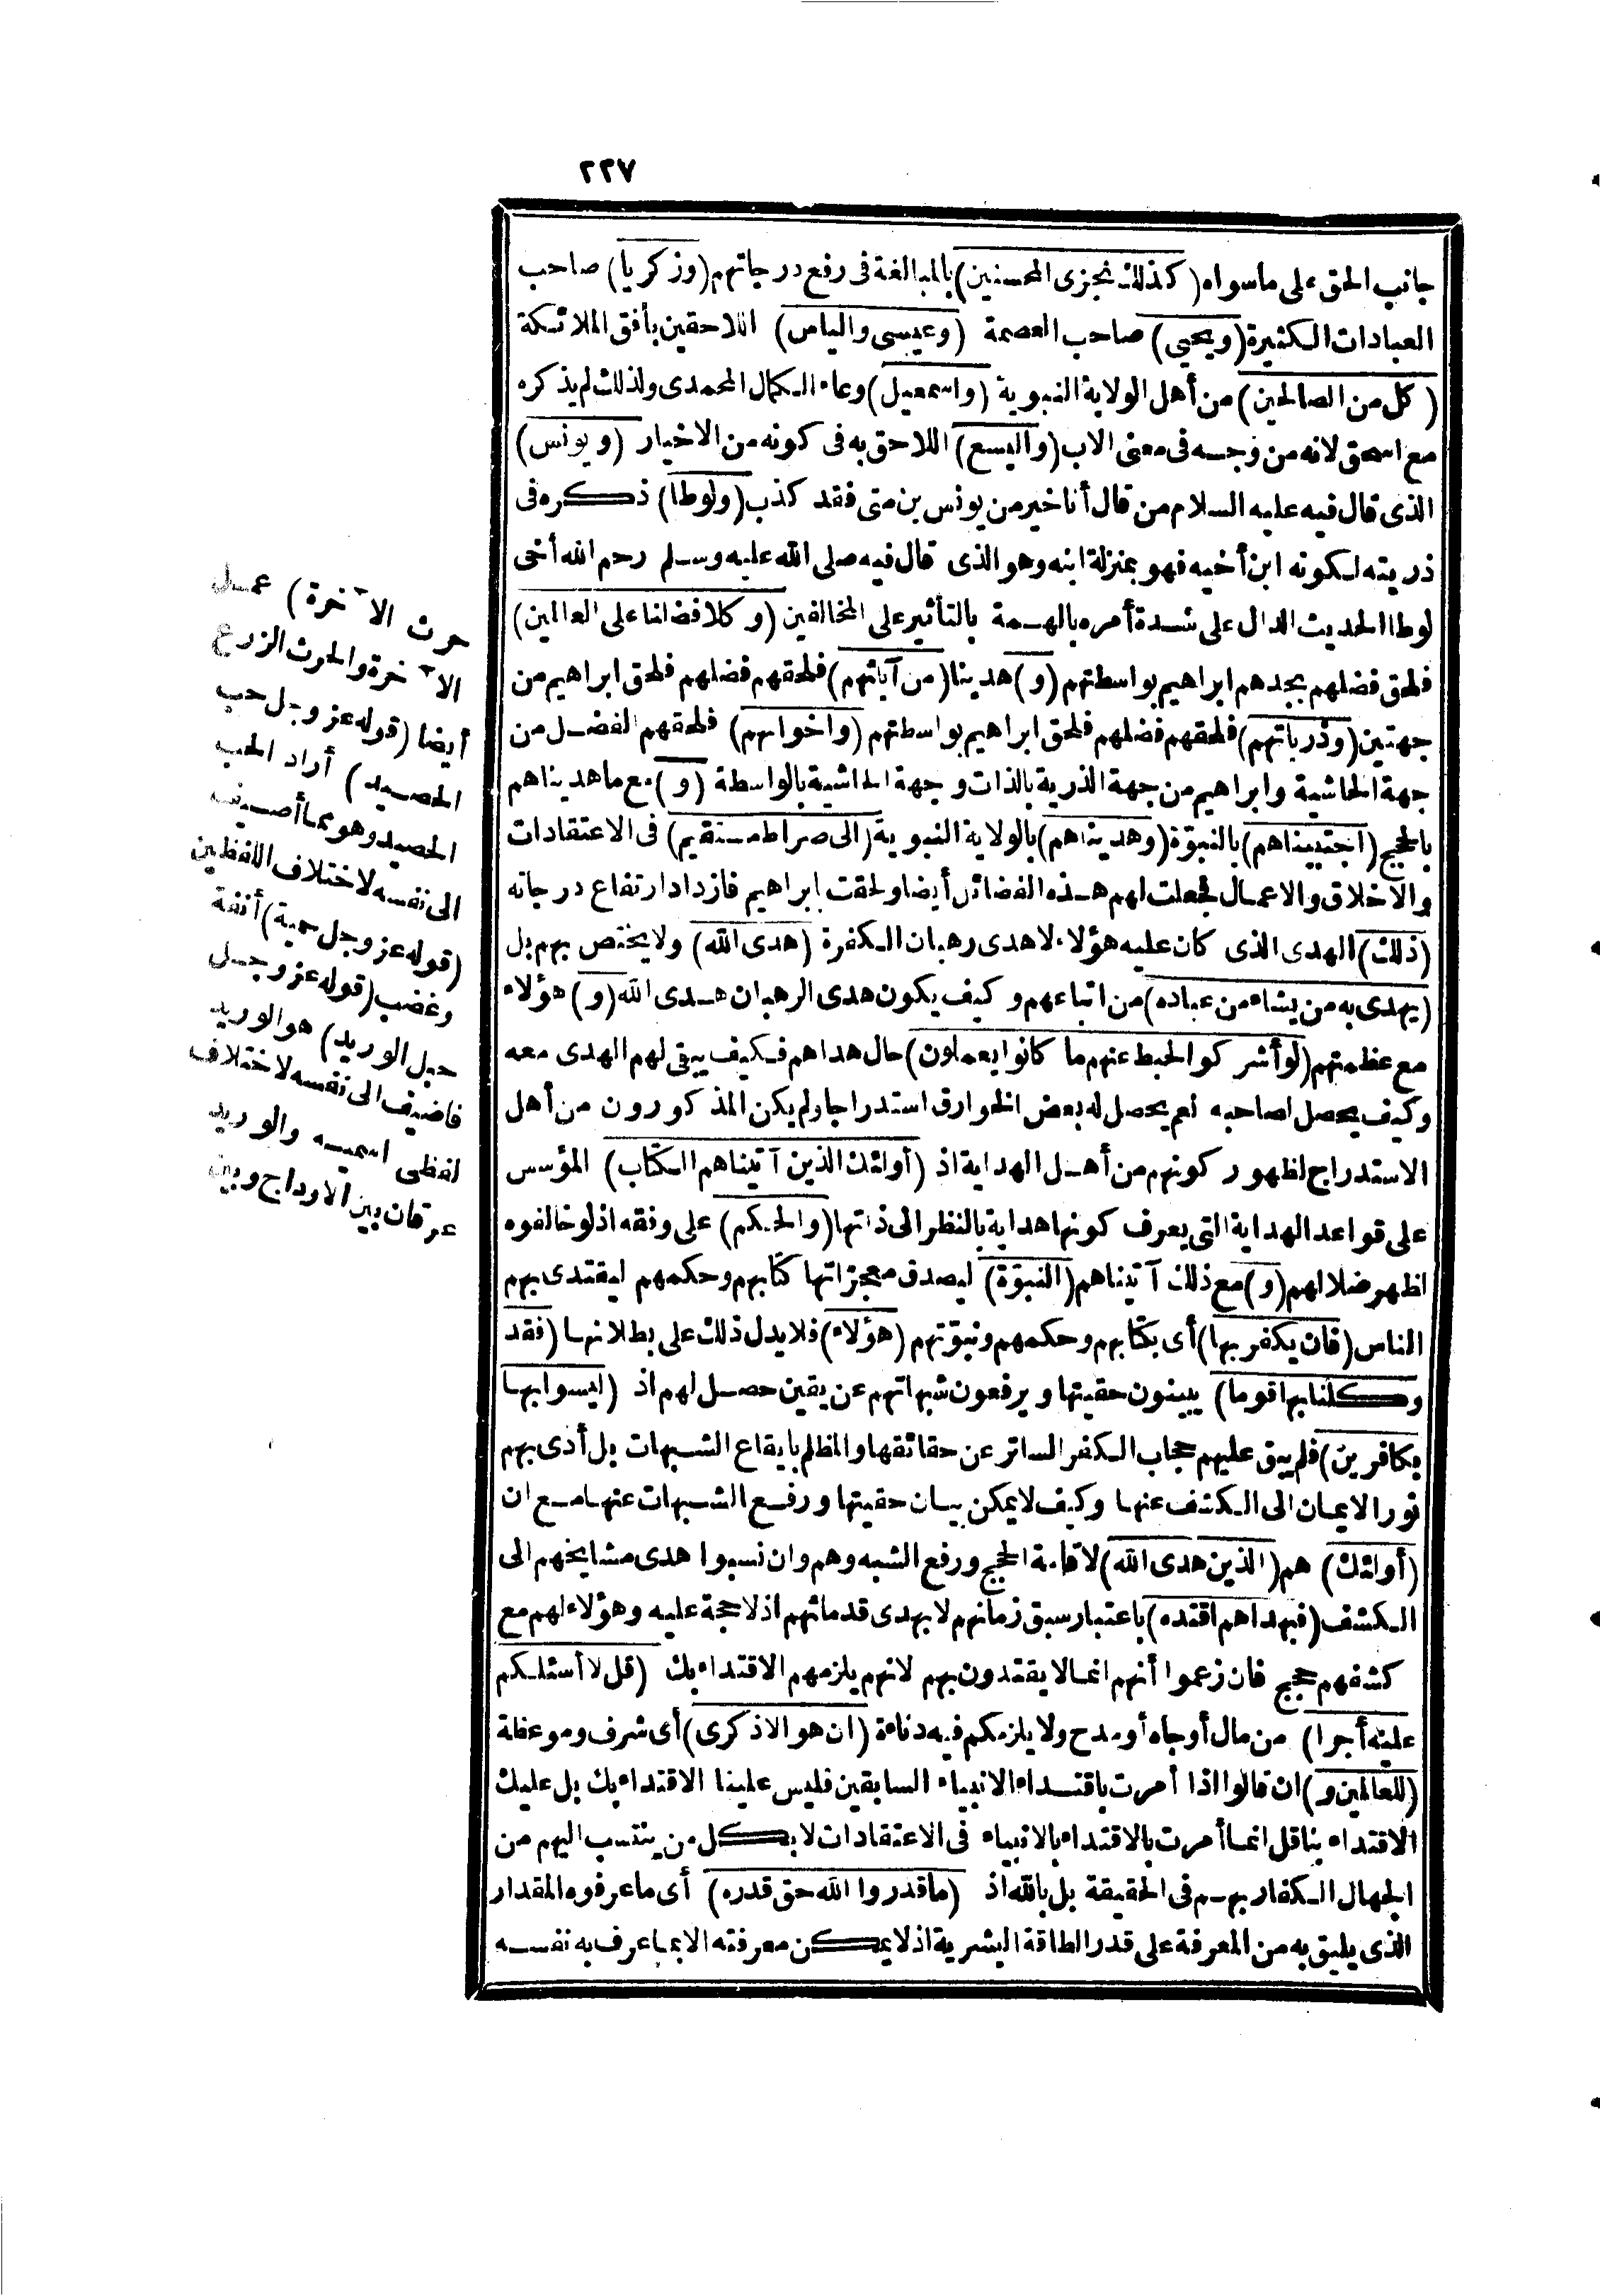 ٢٢٧
جانب الحق على ماسواه (كذلك نجزى المحسنين) بالمبالغة فى رفع درجاتهم (وزكريا) صاحب
العبادات الكثيرة (ويحيى) صاحب العصمة (وعيسى والياس) اللاحقين بأفق الملائكة
(كل من الصالحين) من أهل الولاية النبوية (واسمعيل) وعاء الكمال المحمدى ولذلك لم يذكره
مع اسحق لانه من وجه فى معنى الاب (واليسع) اللاحق به فى كونه من الاخيار (ويونس)
الذى قال فيه عليه السلام من قال أنا خير من يونس بن متى فقد كذب (ولوطا) ذكره فى
ذريته لكونه ابن أخيه فهو بمنزلة ابنه وهو الذى قال فيه صلى الله عليه وسلم رحم الله أخى
لوطا الحديث الدال على شدة أمره بالهمة بالتأثير على المخالفين (وكلا فضلنا على العالمين)
فلحق فضلهم بجدهم ابراهيم بواسطتهم (و) هدينا (من آبائهم) فلحقهم فضلهم فلحق ابراهيم من
جهتين (وذرياتهم) فلحقهم فضلهم فلحق ابراهيم بواسطتهم (واخوانهم) فلحقهم الفضل من
جهة الحاشية وابراهيم من جهة الذرية بالذات وجهة الحاشية بالواسطة (و) مع ما هديناهم
بالحجج (اجتبيناهم) بالنبوّة (وهديناهم) بالولاية النبوية (الى صراط مستقيم) فى الاعتقادات
والاخلاق والاعمال فجعلت لهم هذه الفضائل أيضا ولحقت ابراهيم فازداد ارتفاع درجاته
(ذلك) الهدى الذى كان عليه هؤلاء لا هدى رهبان الكفرة (هدى الله) ولا يختص بهم بل
(يهدى به من يشاء من عباده) من اتباعهم وكيف يكون هدى الرهبان هدى الله (و) هؤلاء
مع عظمتهم (لو أشركوا لحبط عنهم ما كانوا يعملون) حال هداهم فكيف يبقى لهم الهدى معه
وكيف يحصل لصاحبه نعم يحصل له بعض الخوارق استدراجا ولم يكن المذكورون من أهل
الاستدراج لظهور كونهم من أهل الهداية اذ (أولئك الذين آتيناهم الكتاب) المؤسس
على قواعد الهداية التى يعرف كونها هداية بالنظر الى ذاتها (والحكم) على وفقه اذ لو خالفوه
لظهر ضلالهم (و) مع ذلك آتيناهم (النبوّة) ليصدق معجزاتها كتابهم وحكمهم ليقتدى بهم
الناس (فان يكفر بها) أى بكتابهم وحكمهم ونبوّتهم (هؤلاء) فلا يدل ذلك على بطلانها (فقد
وكلنا بها قوما) يبينون حقيتها ويرفعون شبهاتهم عن يقين حصل لهم اذ (ليسوا بها
بكافرين) فلم يبق عليهم حجاب الكفر الساتر عن حقائقها والمظلم بايقاع الشبهات بل أدى بهم
نور الايمان الى الكشف عنها وكيف لا يمكن بيان حقيتها ورفع الشبهات عنها مع ان
(أولئك) هم (الذين هدى الله) لاقامة الحجج ورفع الشبه وهم وان نسبوا هدى مشايخهم الى
الكشف (فبهداهم اقتده) باعتبار سبق زمانهم لا بهدى قدمائهم اذ لا حجة عليه وهؤلاء لهم مع
كشفهم حجج فان زعموا أنهم انما لا يقتدون بهم لانهم يلزمهم الاقتداء بك (قل لا أسئلكم
عليه أجرا) من مال أو جاه أو مدح ولا يلزمكم فيه دناءة (ان هو الا ذكرى) أى شرف وموعظة
(للعالمين و) ان قالوا اذا أمرت باقتداء الانبياء السابقين فليس علينا الاقتداء بك بل عليك
الاقتداء بنا قل انما أمرت بالاقتداء بالانبياء فى الاعتقادات لا بكل من ينتسب اليهم من
الجهال الكفار بهم فى الحقيقة بل بالله اذ (ما قدروا الله حق قدره) أى ما عرفوه المقدار
الذى يليق به من المعرفة على قدر الطاقة البشرية اذ لا يمكن معرفته الا بما عرف به نفسه
حرث الآخرة) عمل
الآخرة والحرث الزرع
أيضا (قوله عز وجل حب
الحصيد) أراد الحب
الحصيد وهو مما أضيف
الى نفسه لاختلاف اللفظين
(قوله عز وجل حمية) أنفة
وغضب (قوله عز وجل
حبل الوريد) هو الوريد
فاضيف الى نفسه لاختلاف
لفظى اسميه والوريد
عرقان بين الاوداج وبين